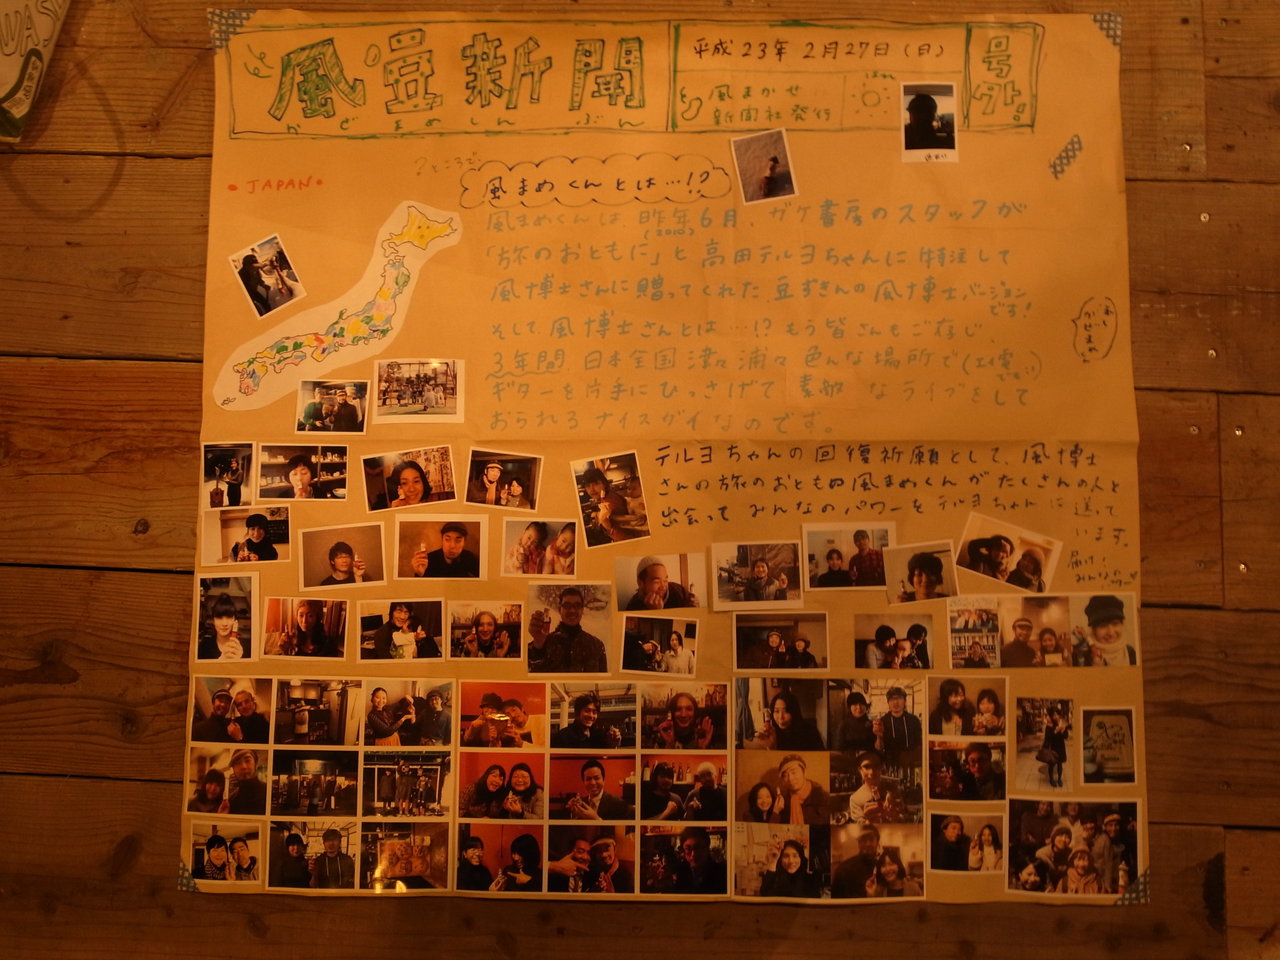 風豆新聞
かぜまめしんぶん
平成23年 2月27日(日)
風まかせ
新聞社発行
はれ
号外。
•JAPAN•
?ところで、
風まめくんとは…!?
風まめくんは、昨年6月、ガケ書房のスタッフが
(2010)
「旅のおともに」と高田テルヨちゃんに特注して
風博士さんに贈ってくれた、豆ずきんの風博士バージョン
です!
そして、風博士さんとは…!?もう皆さんもご存じ
3年間、日本全国津々浦々色んな場所で
ギターを片手にひっさげて素敵なライブをして
おられるナイスガイなのです。
テルヨちゃんの回復祈願として、風博士
さんの旅のおともの風まめくんがたくさんの人と
出会ってみんなのパワーをテルヨちゃんに送って
います。
届け!
みんなの
パワー